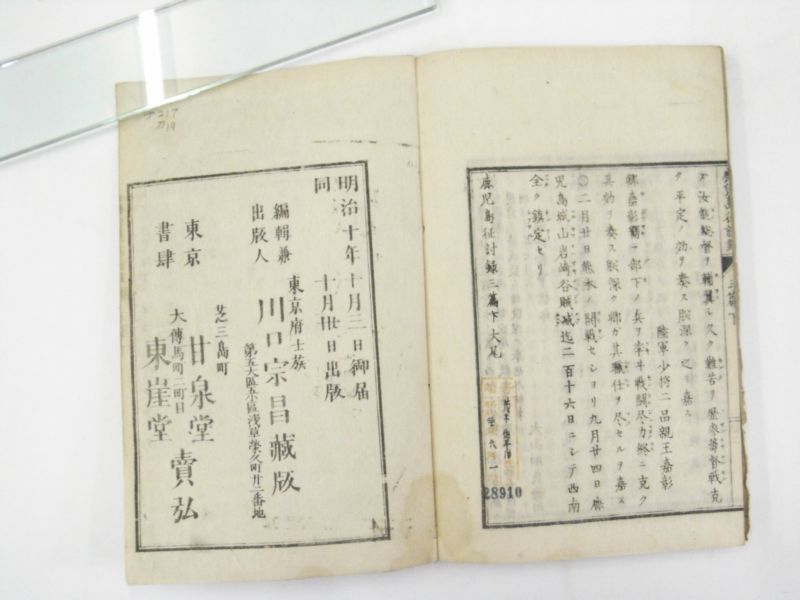 汝能ク總督ヲ輔翼シ久ク艱苦ヲ歴參籌督戦克
ク平定ノ功ヲ奏ス朕深ク之ヲ嘉ス
陸軍少将二品親王嘉彰
卿嘉彰覊部下ノ兵ヲ率牛戦闘尽力終ニ克ク
其功ヲ奏ス朕深ク卿ガ其職仕ヲ尽セルヲ嘉ス
〇二月廿日熊本ノ開戦セシヨリ九月廿四日鹿
児島城山岩崎谷賊滅迄二百十六日ニシテ西南
全ク鎮定セリ
鹿児島征討録三篇下大尾
28910
明治十年十月三日御届
同 十月廿日出版
編輯兼出版人
東京府士族
川口宗昌藏版
第五大區小區浅草榮久町廿二番地
東京書肆
芝三島町
甘泉堂
大傳馬町二町目
東崖堂
賣弘
217